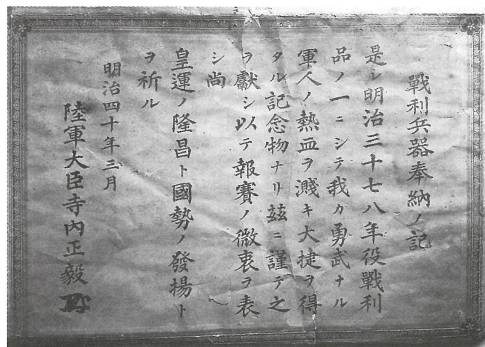 戰利兵器奉納ノ記
是レ明治三十七八年役戰利
品ノ一ニシテ我カ勇武ナル
軍人ノ熱血ヲ濺キ大捷ヲ得
タル記念物ナリ茲ニ謹テ之
ヲ獻シ以テ報賽ノ微衷ヲ表
シ尚
皇運ノ隆昌ト國勢ノ發揚ト
ヲ祈ル
明治四十年三月
陸軍大臣寺內正毅